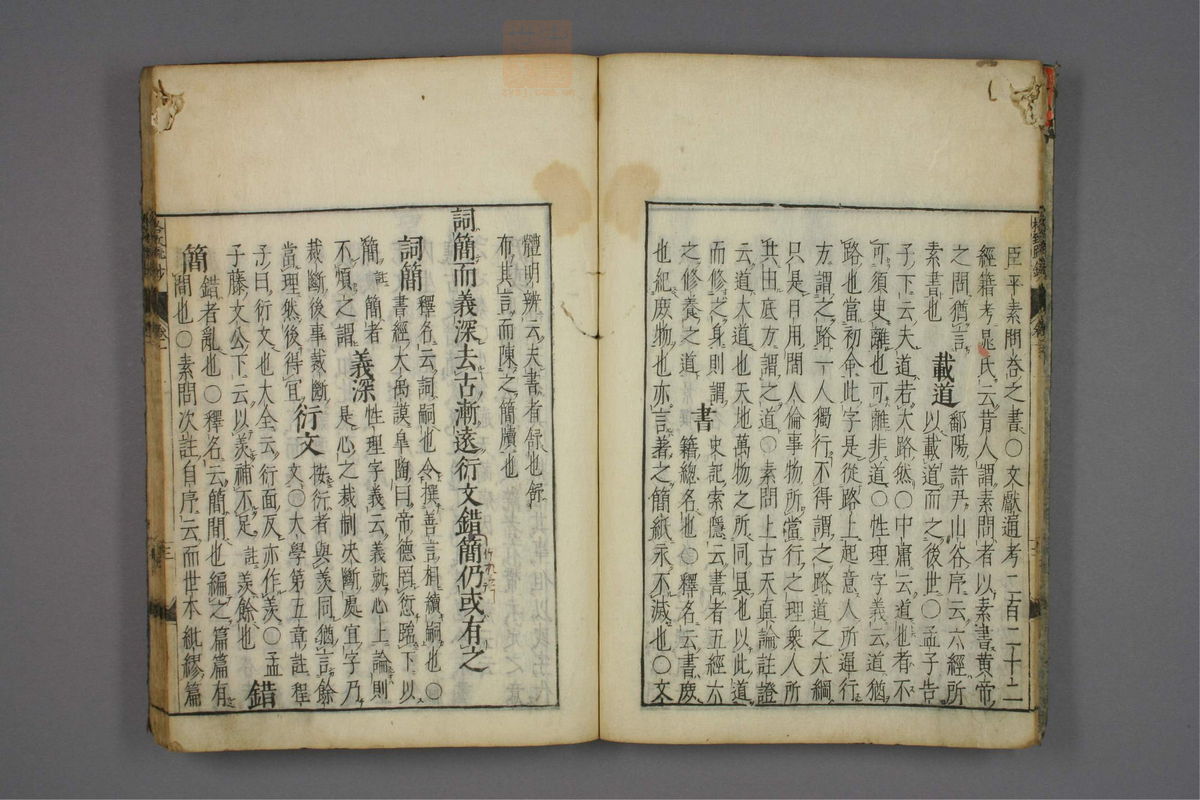 臣平素問荅之書○文獻通考二百二十七
經籍考晁氏云昔人謂素問者以素書黃帝
之問猶言
素書也
載道
鄱陽許尹山谷序云六經所
以載道而之後世○孟子告
子下云夫道若大路然○中庸云道也者不
可須臾離也可離非道○性理字義云道猶
路也當初命此字是從路上起意人所通行
方謂之路一人獨行不得謂之路道之大綱
只是日用間人倫事物所當行之理衆人所
共由底方謂之道○素問上古天真論註證
云道大道也天地萬物之所同具也以此道
而修之身則謂
之修養之道
書
史記索隱云書者五經六
籍總名也○釋名云書庶
也紀庶物也亦言著之簡紙永不滅也○文
體明辨云夫書者錄也錄
布其言而陳之簡牘也
詞簡而義深去古漸遠衍文錯簡仍或有之
詞簡
釋名云詞嗣也令撰善言相續嗣也○
書經大禹謨皐陶曰帝德罔愆臨下以
簡註簡者
不煩之謂
義深
性理字義云義就心上論則
是心之裁制決斷處宜字乃
裁斷後事裁斷
當理然後得宜
衍文
按衍者與羨同猶言餘
文○大學第五章註程
子曰衍文也大全云衍面反亦作羨○孟
子藤文公下云以羨補不足註羨餘也
錯
簡
錯者亂也○釋名云簡間也編之篇篇有
間也○素問次註自序云而世本紕繆篇